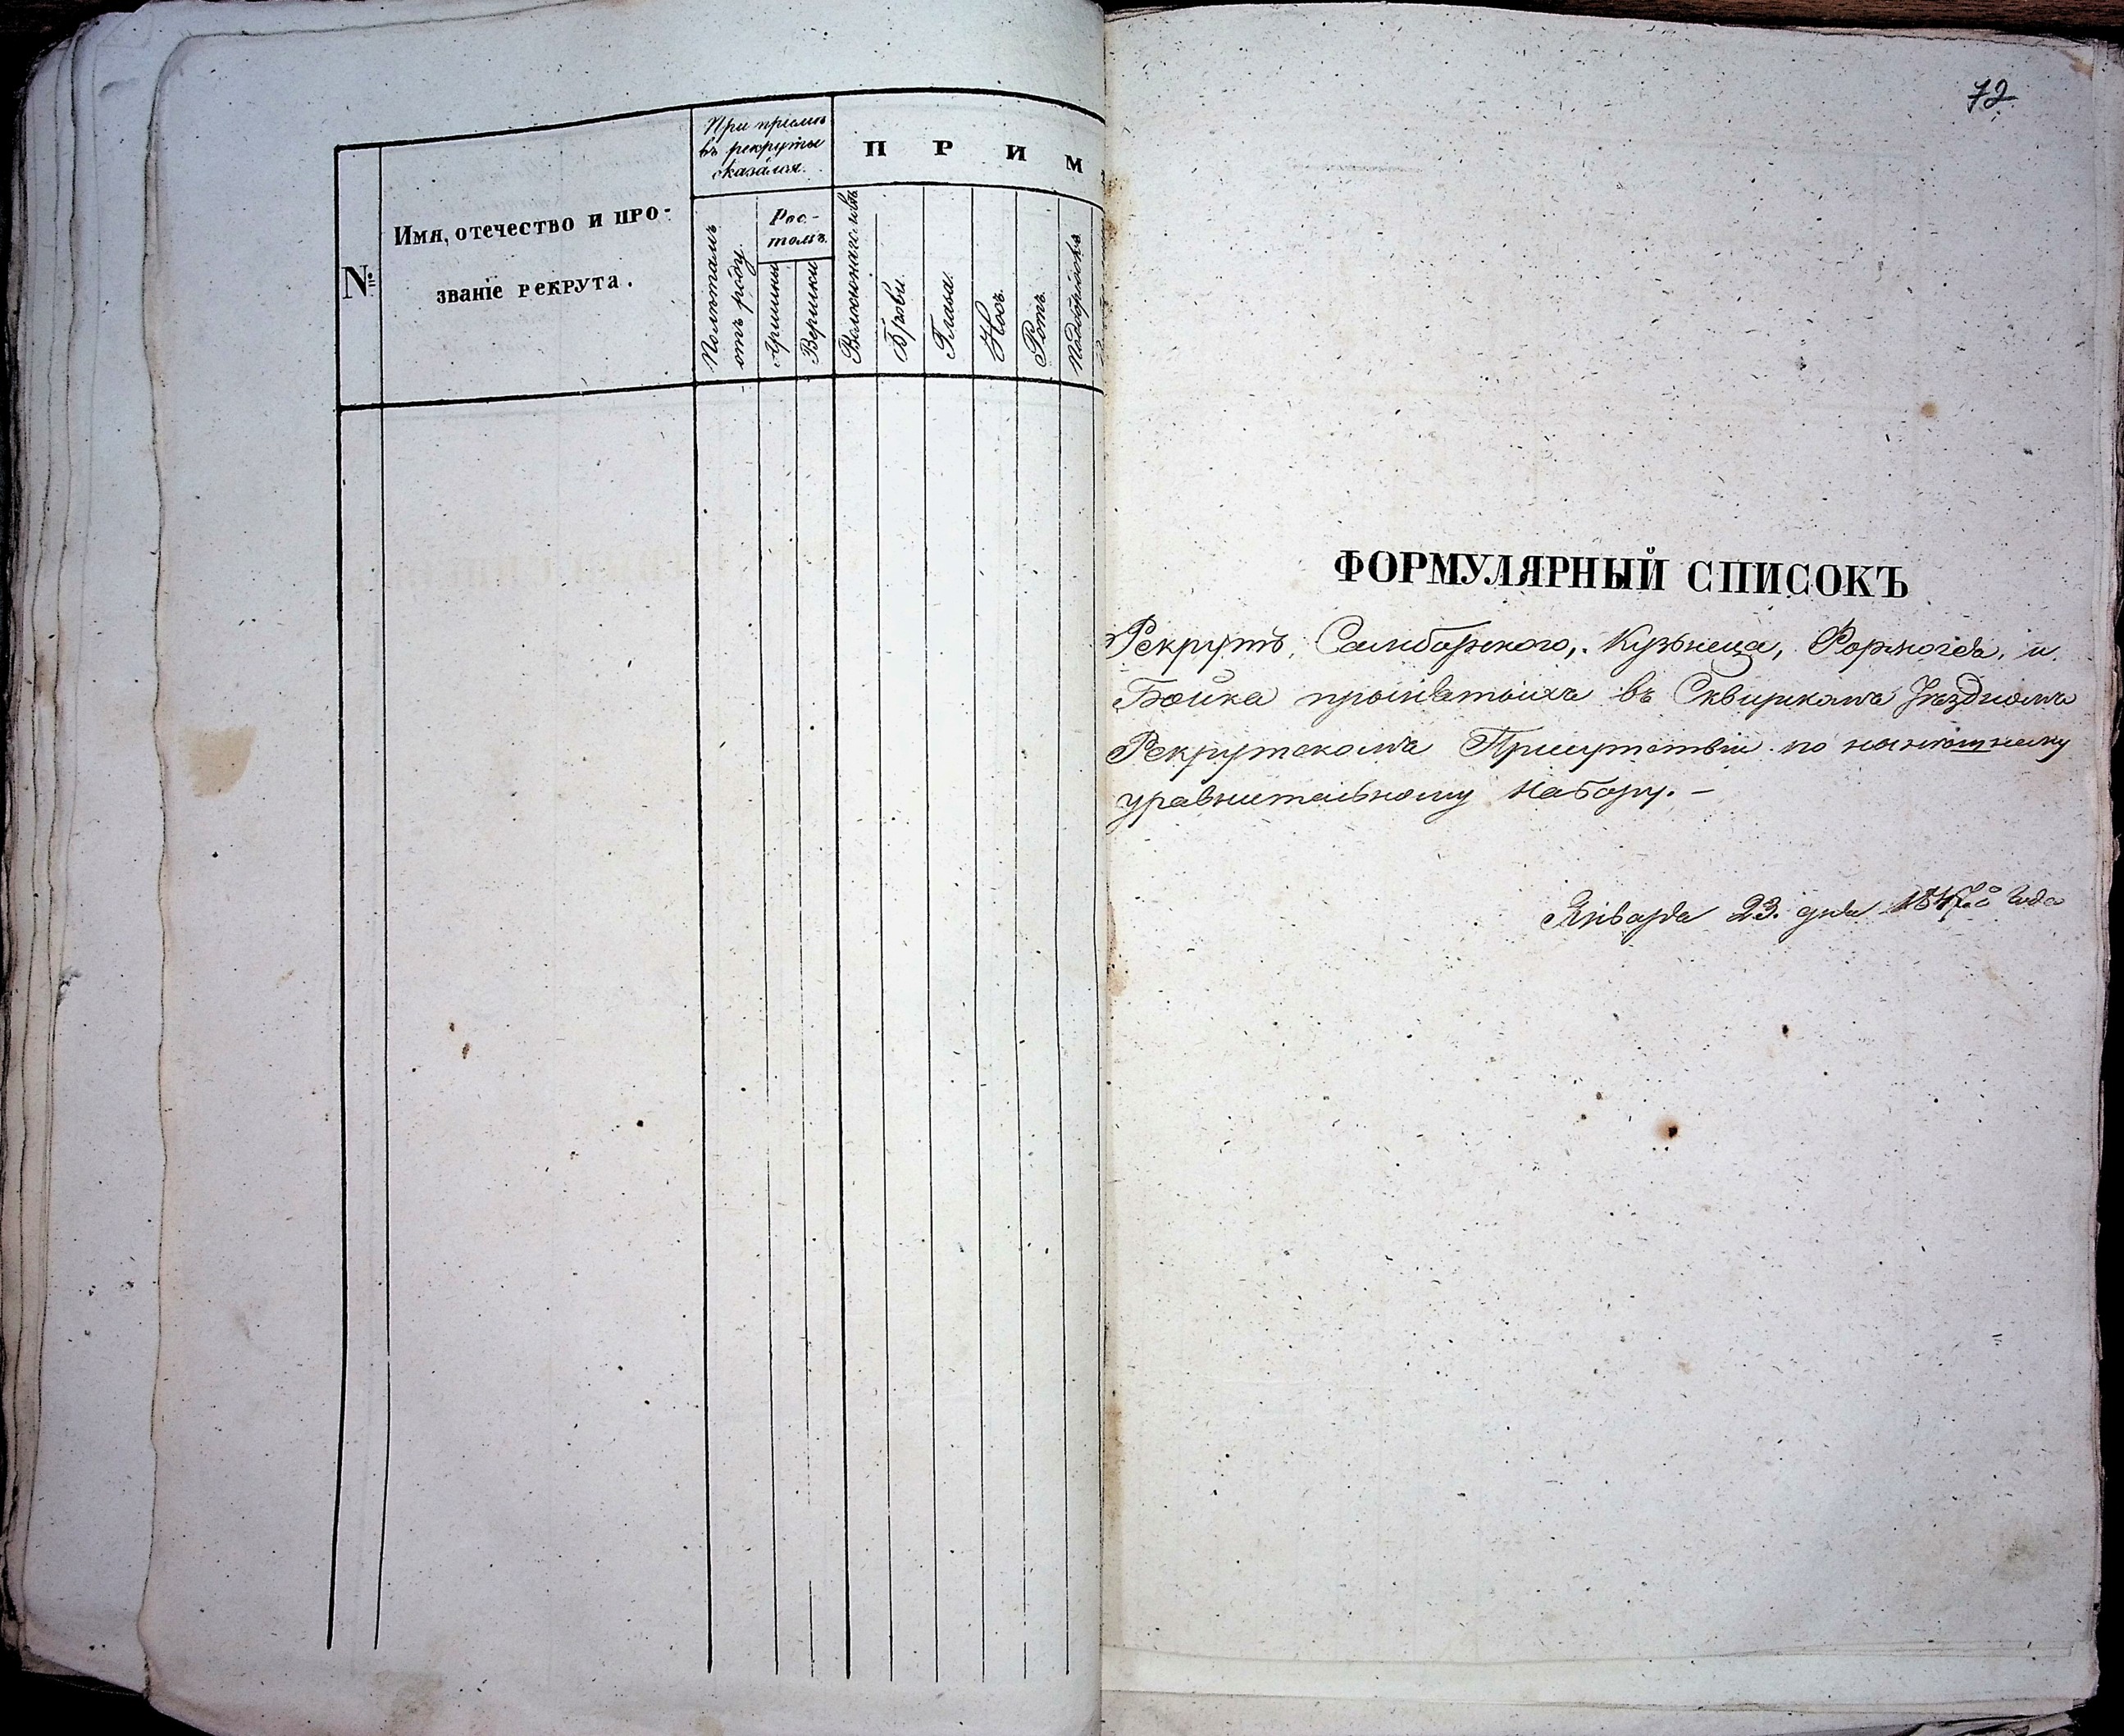 №
Имя, отечество и про-
званіе рекрута.
При пріемѣ
въ рекруты
оказался.
Полѣтамъ
отъ роду.
Рос-
томъ.
Аршины
Вершки
Волосы на головѣ
П Р И М
Брови.
Глаза.
Носъ.
Ротъ.
Подбородокъ
72
ФОРМУЛЯРНЫЙ СПИСОКЪ
Рекрутъ, Самборского, Кузьнеца, и
Бойка принятыхъ въ Сквиркомъ Уѣздномъ
Рекрутскомъ Присутствіи по нынѣшнему
уравнительному набору. –
Января 23. дня 1847.го Года